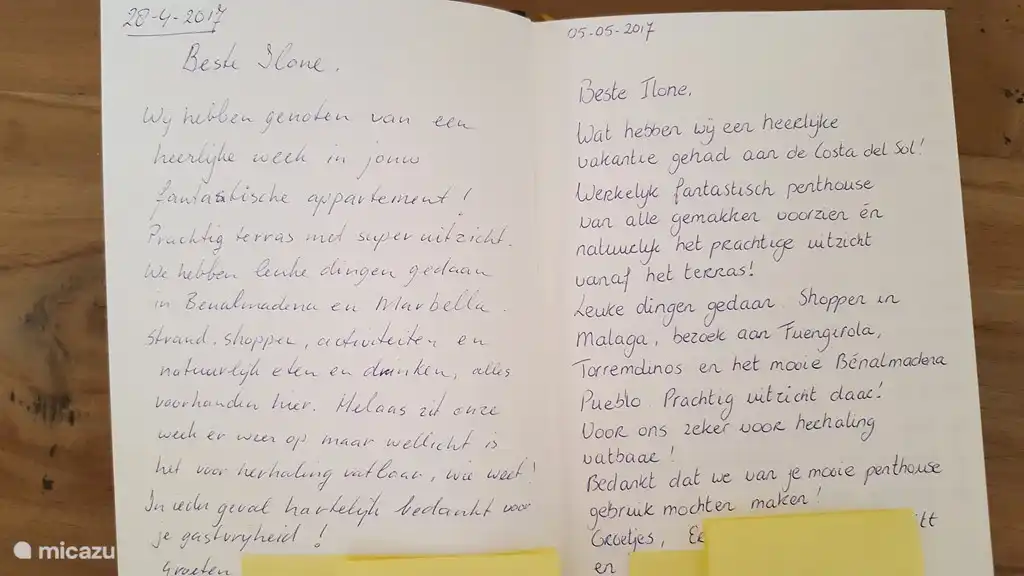 28-4-2017
Beste Ilone,
Wij hebben genoten van een
heerlijke week in jouw
fantastische appartement!
Prachtig terras met super uitzicht.
We hebben leuke dingen gedaan
in Benalmadena en Marbella.
Strand, shoppen, activiteiten en
natuurlijk eten en drinken, alles
voorhanden hier. Helaas zit onze
week er weer op maar wellicht is
het voor herhaling vatbaar, wie weet!
In ieder geval hartelijk bedankt voor
je gastvrijheid!
Groeten
05-05-2017
Beste Ilone,
Wat hebben wij een heerlijke
vakantie gehad aan de Costa del Sol!
Werkelijk fantastisch penthouse
van alle gemakken voorzien én
natuurlijk het prachtige uitzicht
vanaf het terras!
Leuke dingen gedaan. Shoppen in
Malaga, bezoek aan Fuengirola,
Torremolinos en het mooie Bénalmadena
Pueblo. Prachtig uitzicht daar!
Voor ons zeker voor herhaling
vatbaar!
Bedankt dat we van je mooie penthouse
gebruik mochten maken!
Groetjes,
en
micazu